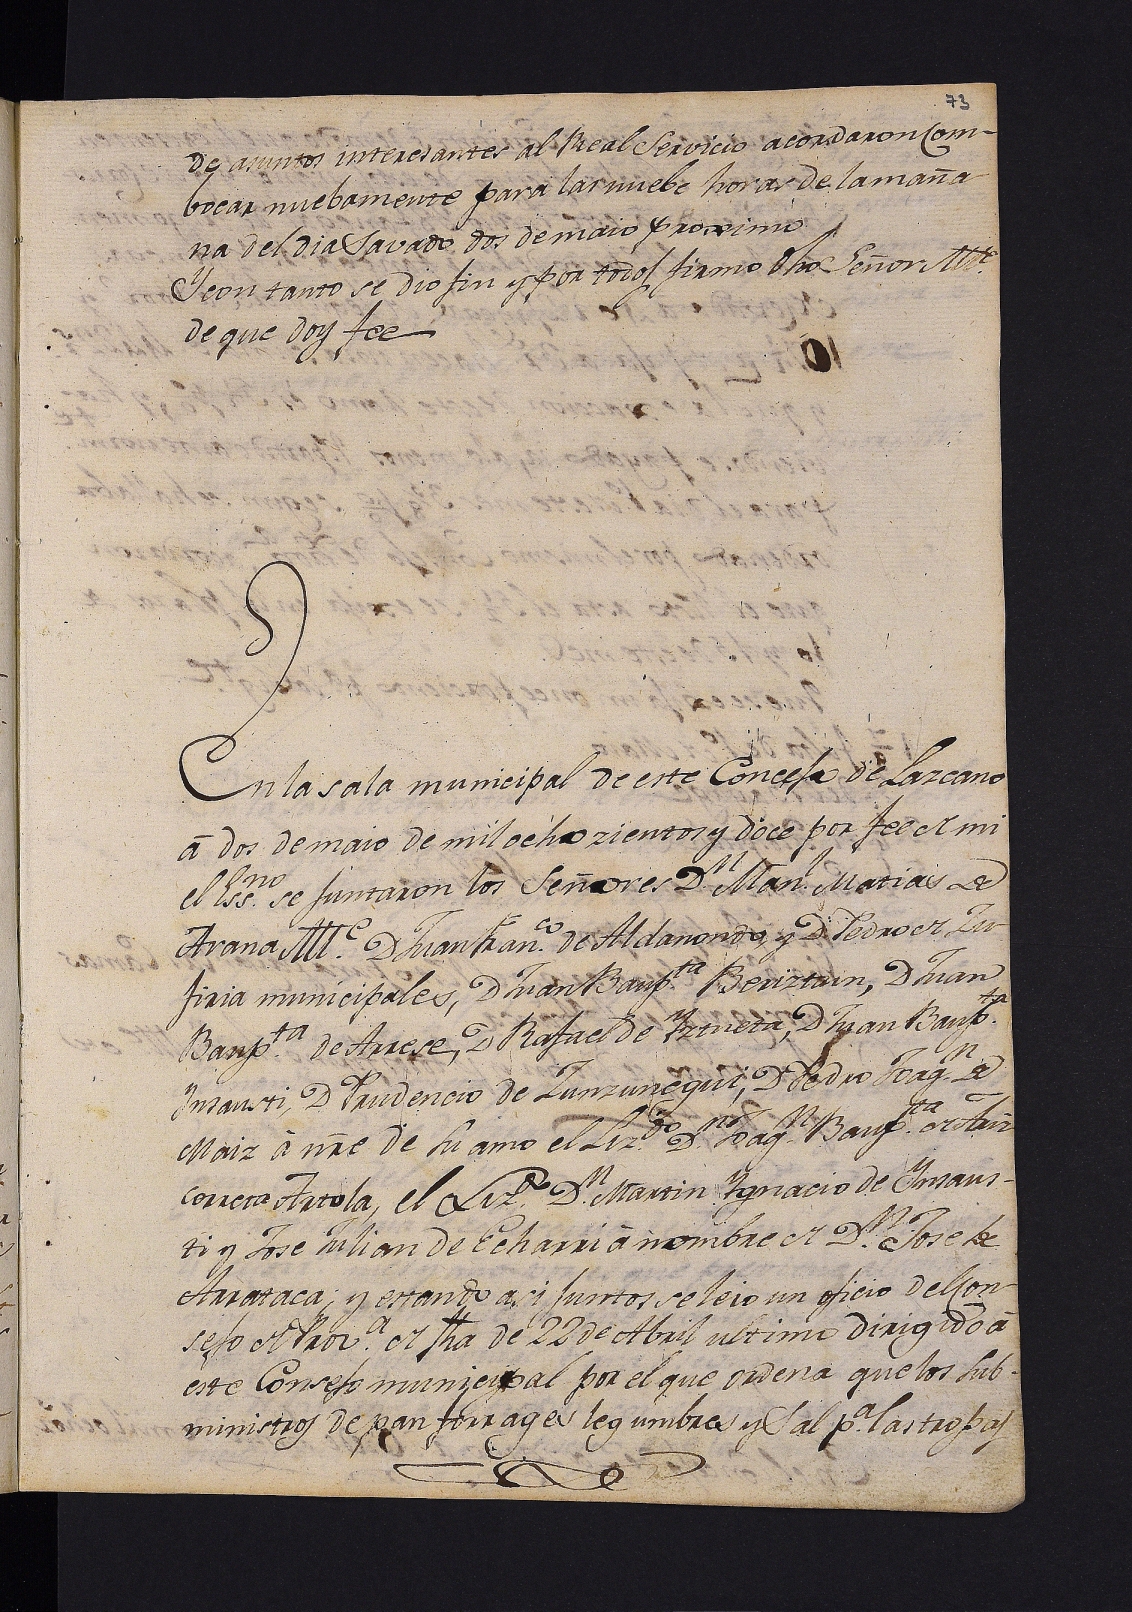 73
de asuntos interesantes al Real Servicio acordaron Com-
bocar nuebamente para las nuebe horas de la maña-
na del dia Savado dos de maio proximo
Y con tanto se dio fin y por todos firmo dho Señor Alc.e
de que doy fee
En la sala municipal de este Concejo de Lazcano
â dos de maio de mil ochozientos y doce por fee de mi
el Ess.no se juntaron los Señores D.n Man.l Matias de
Arana Alc.e D Juan Fran.co de Aldanondo, y D Pedro de
firia municipales, D Juan Baup.ta Beriztain, D Juan
Baup.ta de Arrese, D Rafael de Yztueta, D Juan Baup.ta
Ynsausti, D Prudencio de Zunzunegui, D Pedro Joaq.n de
Maiz â nre de su amo el Liz.do D.n Joaq.n Baup.ta de
correta Artola, el Liz.do D.n Martin Ygnacio de Ynsaus-
ti y Jose Julian de Echarri â nombre de D.n Jose de
Arrataca; y estando asi juntos se leio un oficio del Con-
sejo de Prov.a de fha de 22 de Abril ultimo dirigido â
este Consejo municipal por el que ordena que los sub-
ministros de pan forrages legumbres y Sal p.a las tropas